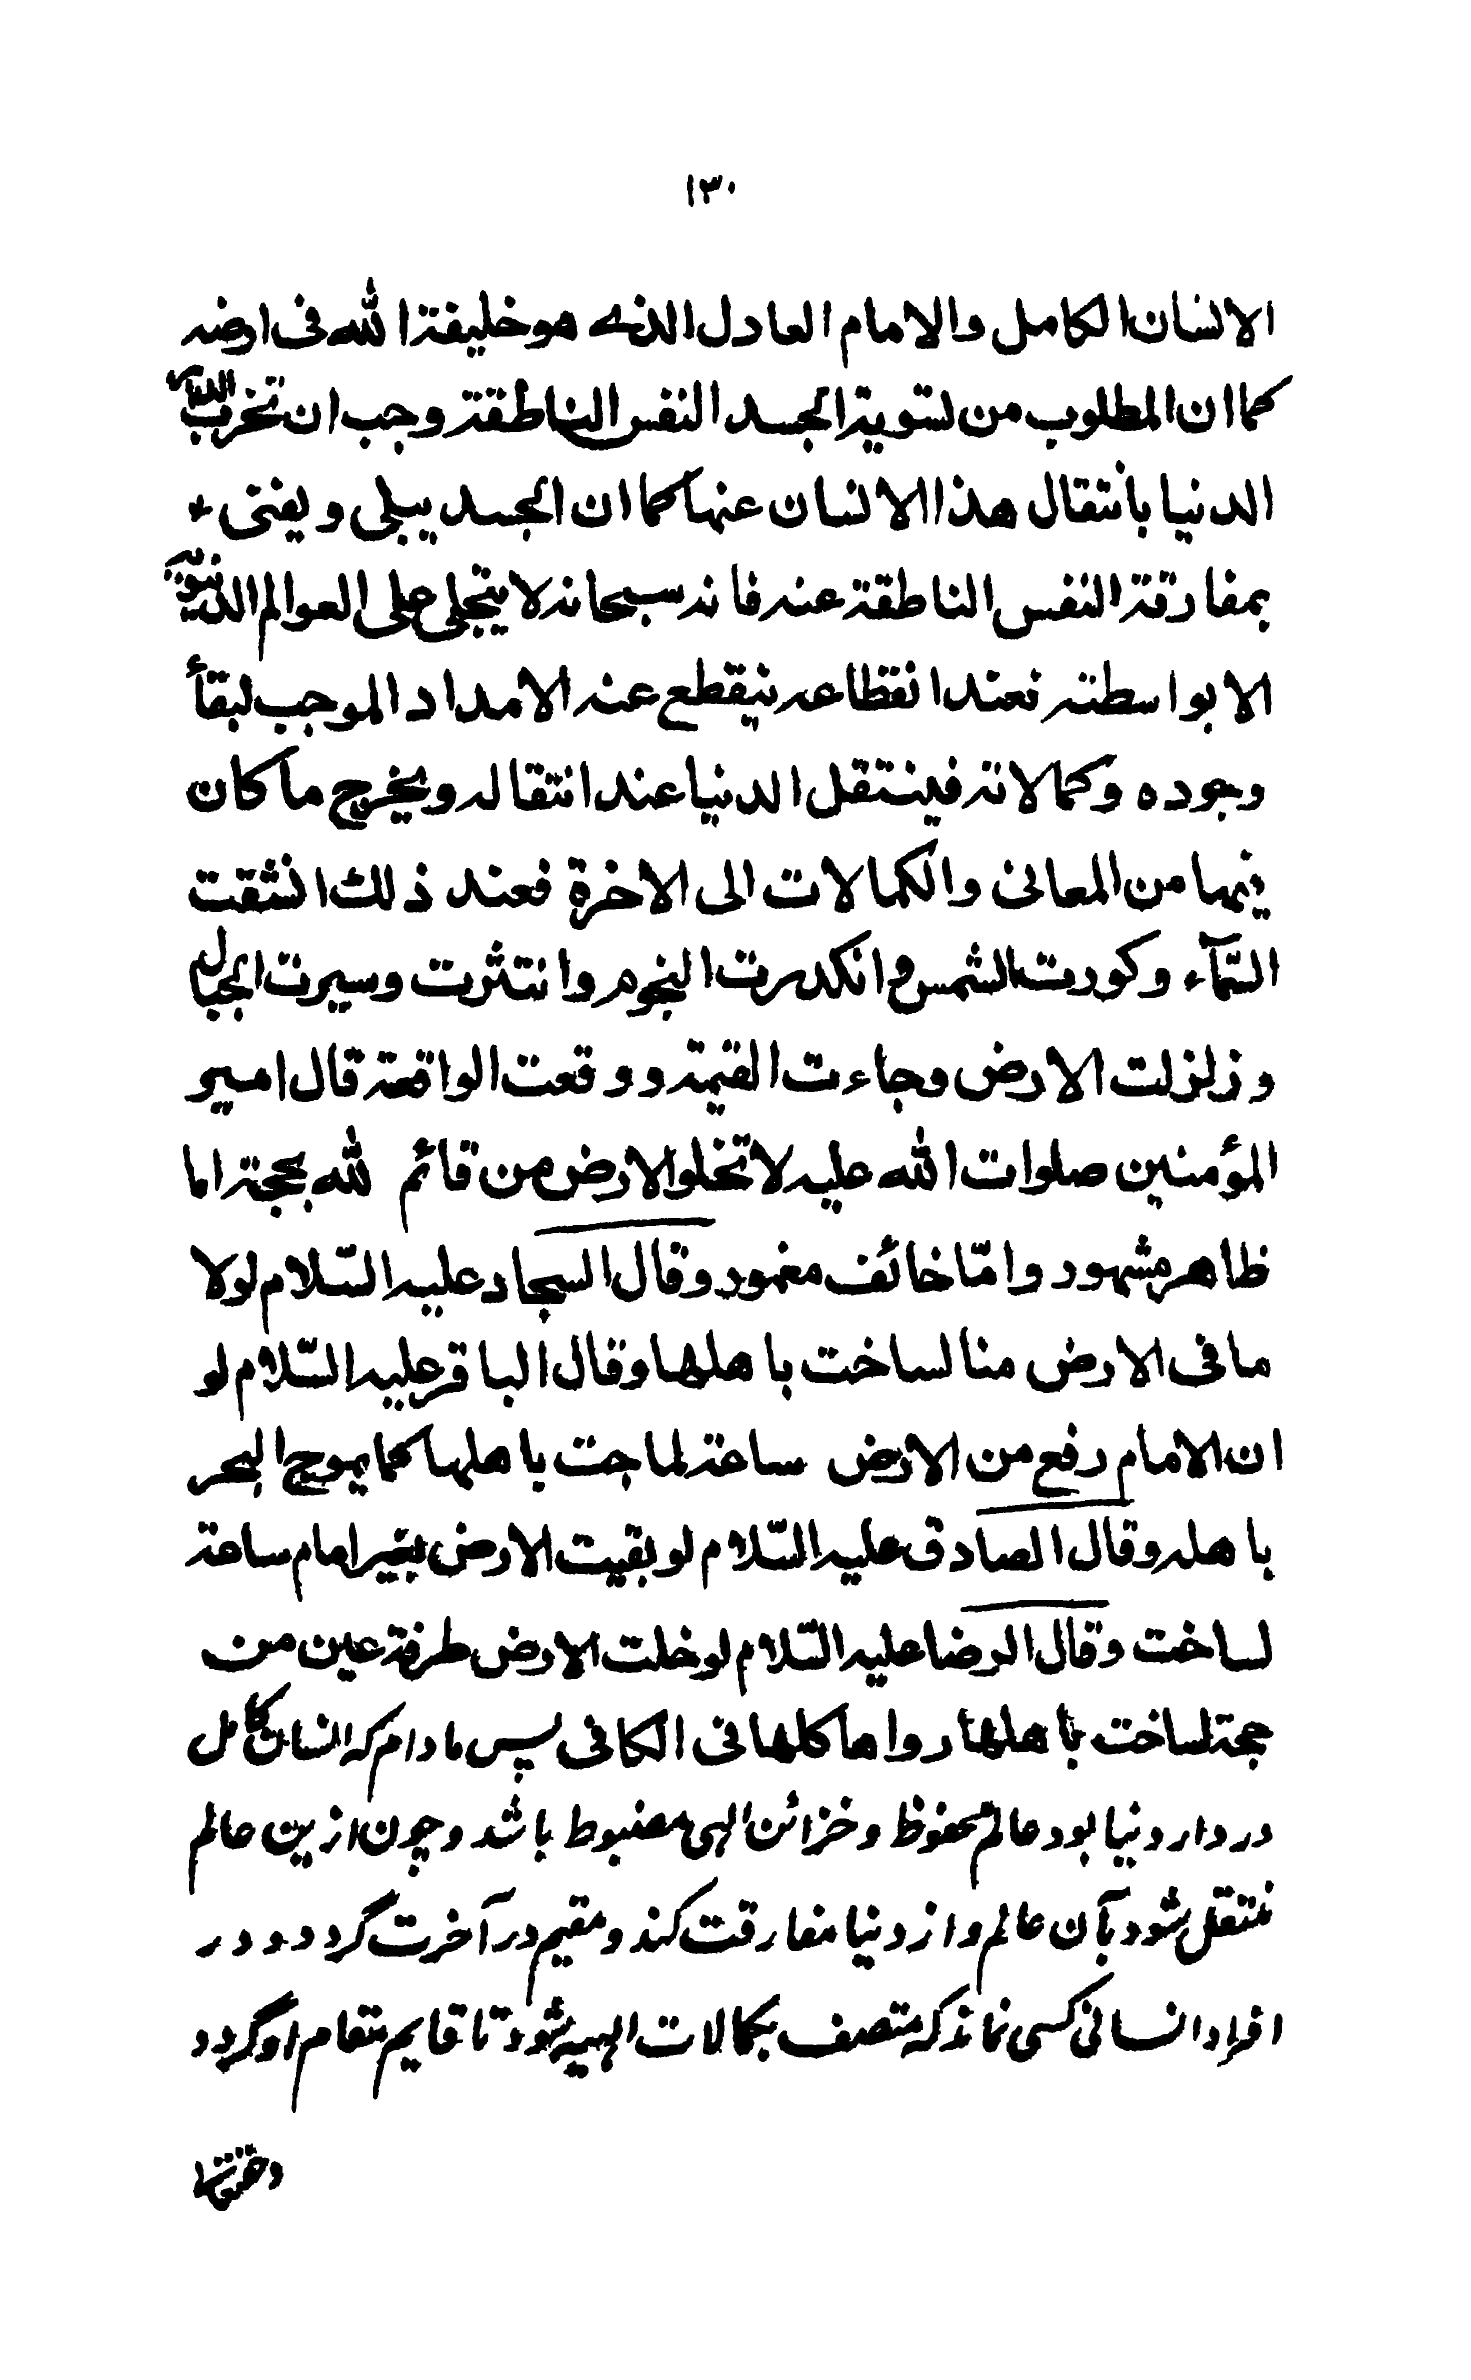 ١٣٠
الانسان الكامل والامام العادل الذى هو خليفة الله فى ارضه
كما ان المطلوب من تسوية الجسد النفس الناطقة وجب ان تخرب الدار
الدنيا بانتقال هذا الانسان عنها كما ان الجسد يبلى و يفنى
بمفارقة النفس الناطقة عنه فانه سبحانه لا يتجلى على العوالم الدنيوية
الا بواسطته فعند انقطاعه ينقطع عنه الامداد الموجب لبقأ
وجوده وكمالاته فينتقل الدنيا عند انتقاله ويخرج ما كان
فيها من المعانى والكمالات الى الاخرة فعند ذلك انشقت
السّمآء وكورت الشمس وانكدرت النجوم وانتثرت وسيرت الجبال
وزلزلت الارض وجاءت القيمة ووقعت الواقعة قال امير
المؤمنين صلوات الله عليه لا تخلو الارض من قائم لله بحجة اما
ظاهر مشهور وامّا خائف مغمور وقال السجاد عليه السّلام لولا
ما فى الارض منا لساخت باهلها وقال الباقر عليه السّلام لو
ان الامام رفع من الارض ساعة لماجت باهلها كما يموج البحر
باهله وقال الصادق عليه السّلام لو بقيت الارض بغير امام ساعة
لساخت وقال الرضا عليه السّلام لو خلت الارض طرفة عين من
حجة لساخت باهلها رواها كلها فى الكافى پس مادام كه انسان كامل
در دار دنيا بود عالم محفوظ و خزائن الهى مضبوط باشد و چون ازين عالم
منتقل شود بآن عالم و از دنيا مفارقت كند و مقيم در آخرت گردد و در
افراد انسانى كسى نماند كه متصف بكمالات الهيه شود تا قايم مقام او گردد